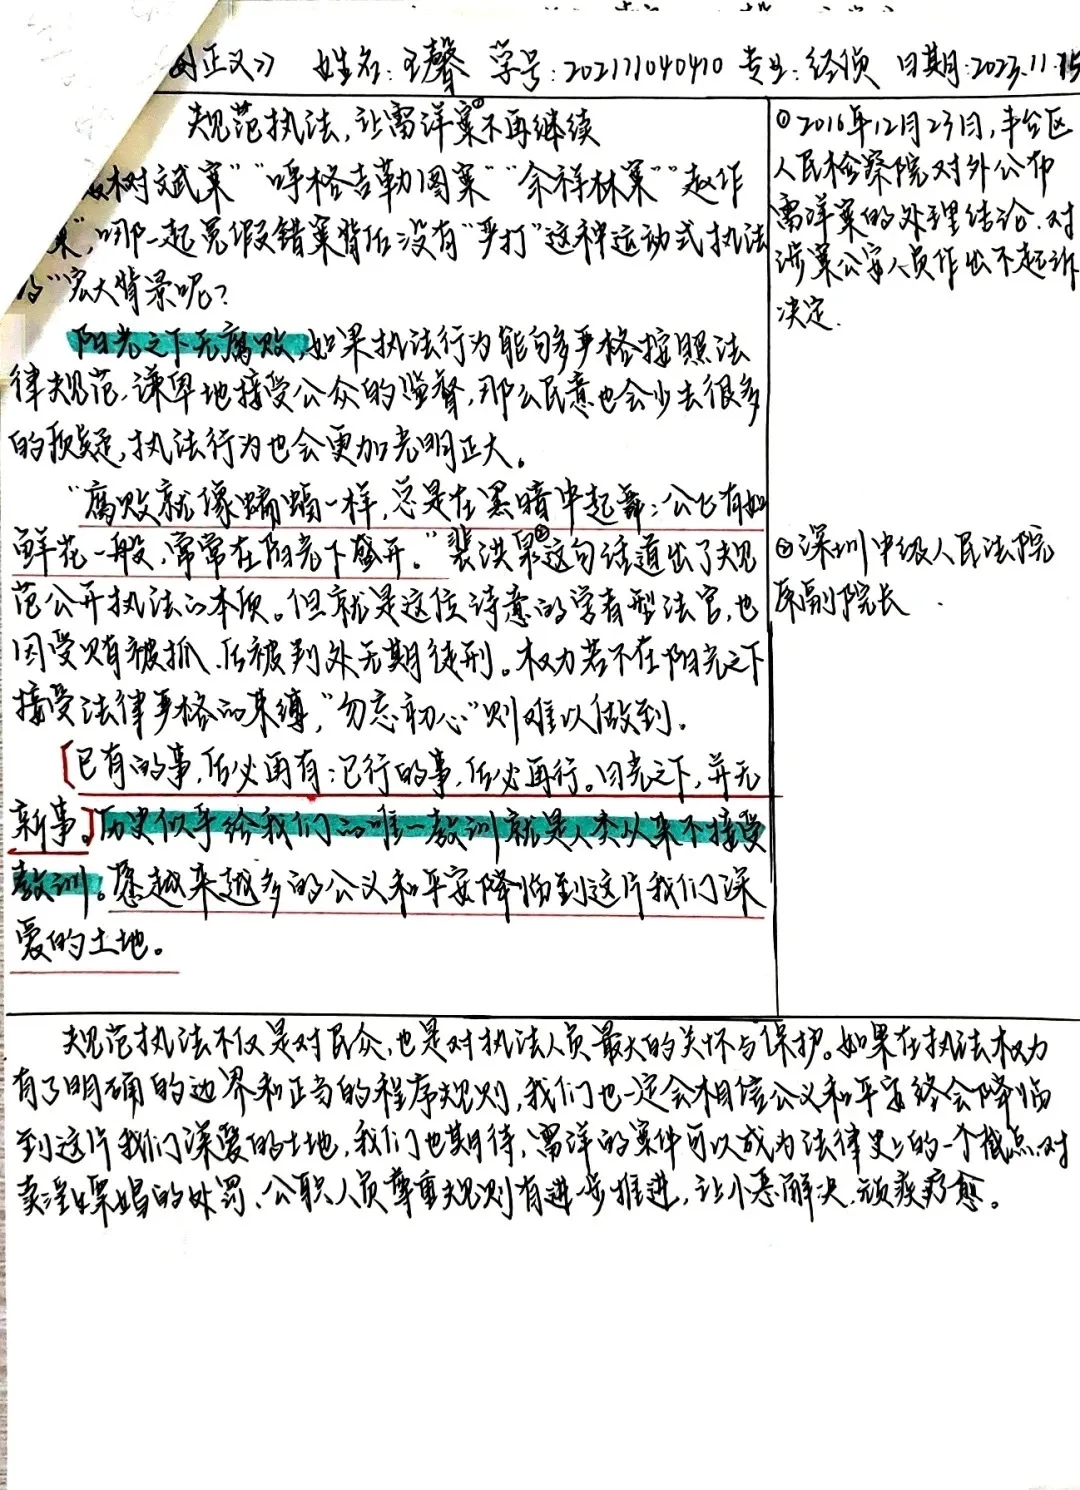 正义》 姓名:王馨 学号:202111040410 专业:经侦 日期:2023.11.15
规范执法,让雷洋案①不再继续
树斌案”“呼格吉勒图案”“佘祥林案”“赵作
案”,哪一起冤假错案背后没有“严打”这种运动式执法
的“宏大背景呢?
阳光之下无腐败,如果执法行为能够多严格按照法
律规范,谦卑地接受公众的监督,那么民意也会少去很多
的质疑,执法行为也会更加光明正大。
“腐败就像蝙蝠一样,总是在黑暗中起舞;公正有如
鲜花一般,常常在阳光下盛开。”裴洪泉②这句话道出了规
范公开执法的本质。但就是这位诗意的学者型法官,也
因受贿被抓、后被判处无期徒刑。权力若不在阳光之下
接受法律严格的束缚,“勿忘初心”则难以做到。
[已有的事,后必再有;已行的事,后必再行。日光之下,并无
新事。]历史似乎给我们的唯一教训就是人类从来不接受
教训。愿越来越多的公义和平安降临到这片我们深
爱的土地。
①2016年12月23日,丰台区
人民检察院对外公布
雷洋案的处理结论,对
涉案公安人员作出不起诉
决定.
②深圳中级人民法院
原副院长
规范执法不仅是对民众,也是对执法人员最大的关怀与保护。如果在执法权力
有了明确的边界和正当的程序规则,我们也一定会相信公义和平安终会降临
到这片我们深爱的土地,我们也期待,雷洋的案件可以成为法律史上的一个拐点,对
卖淫嫖娼的处罚、公职人员尊重规则有进一步推进,让小恶解决,顽疾疗愈。